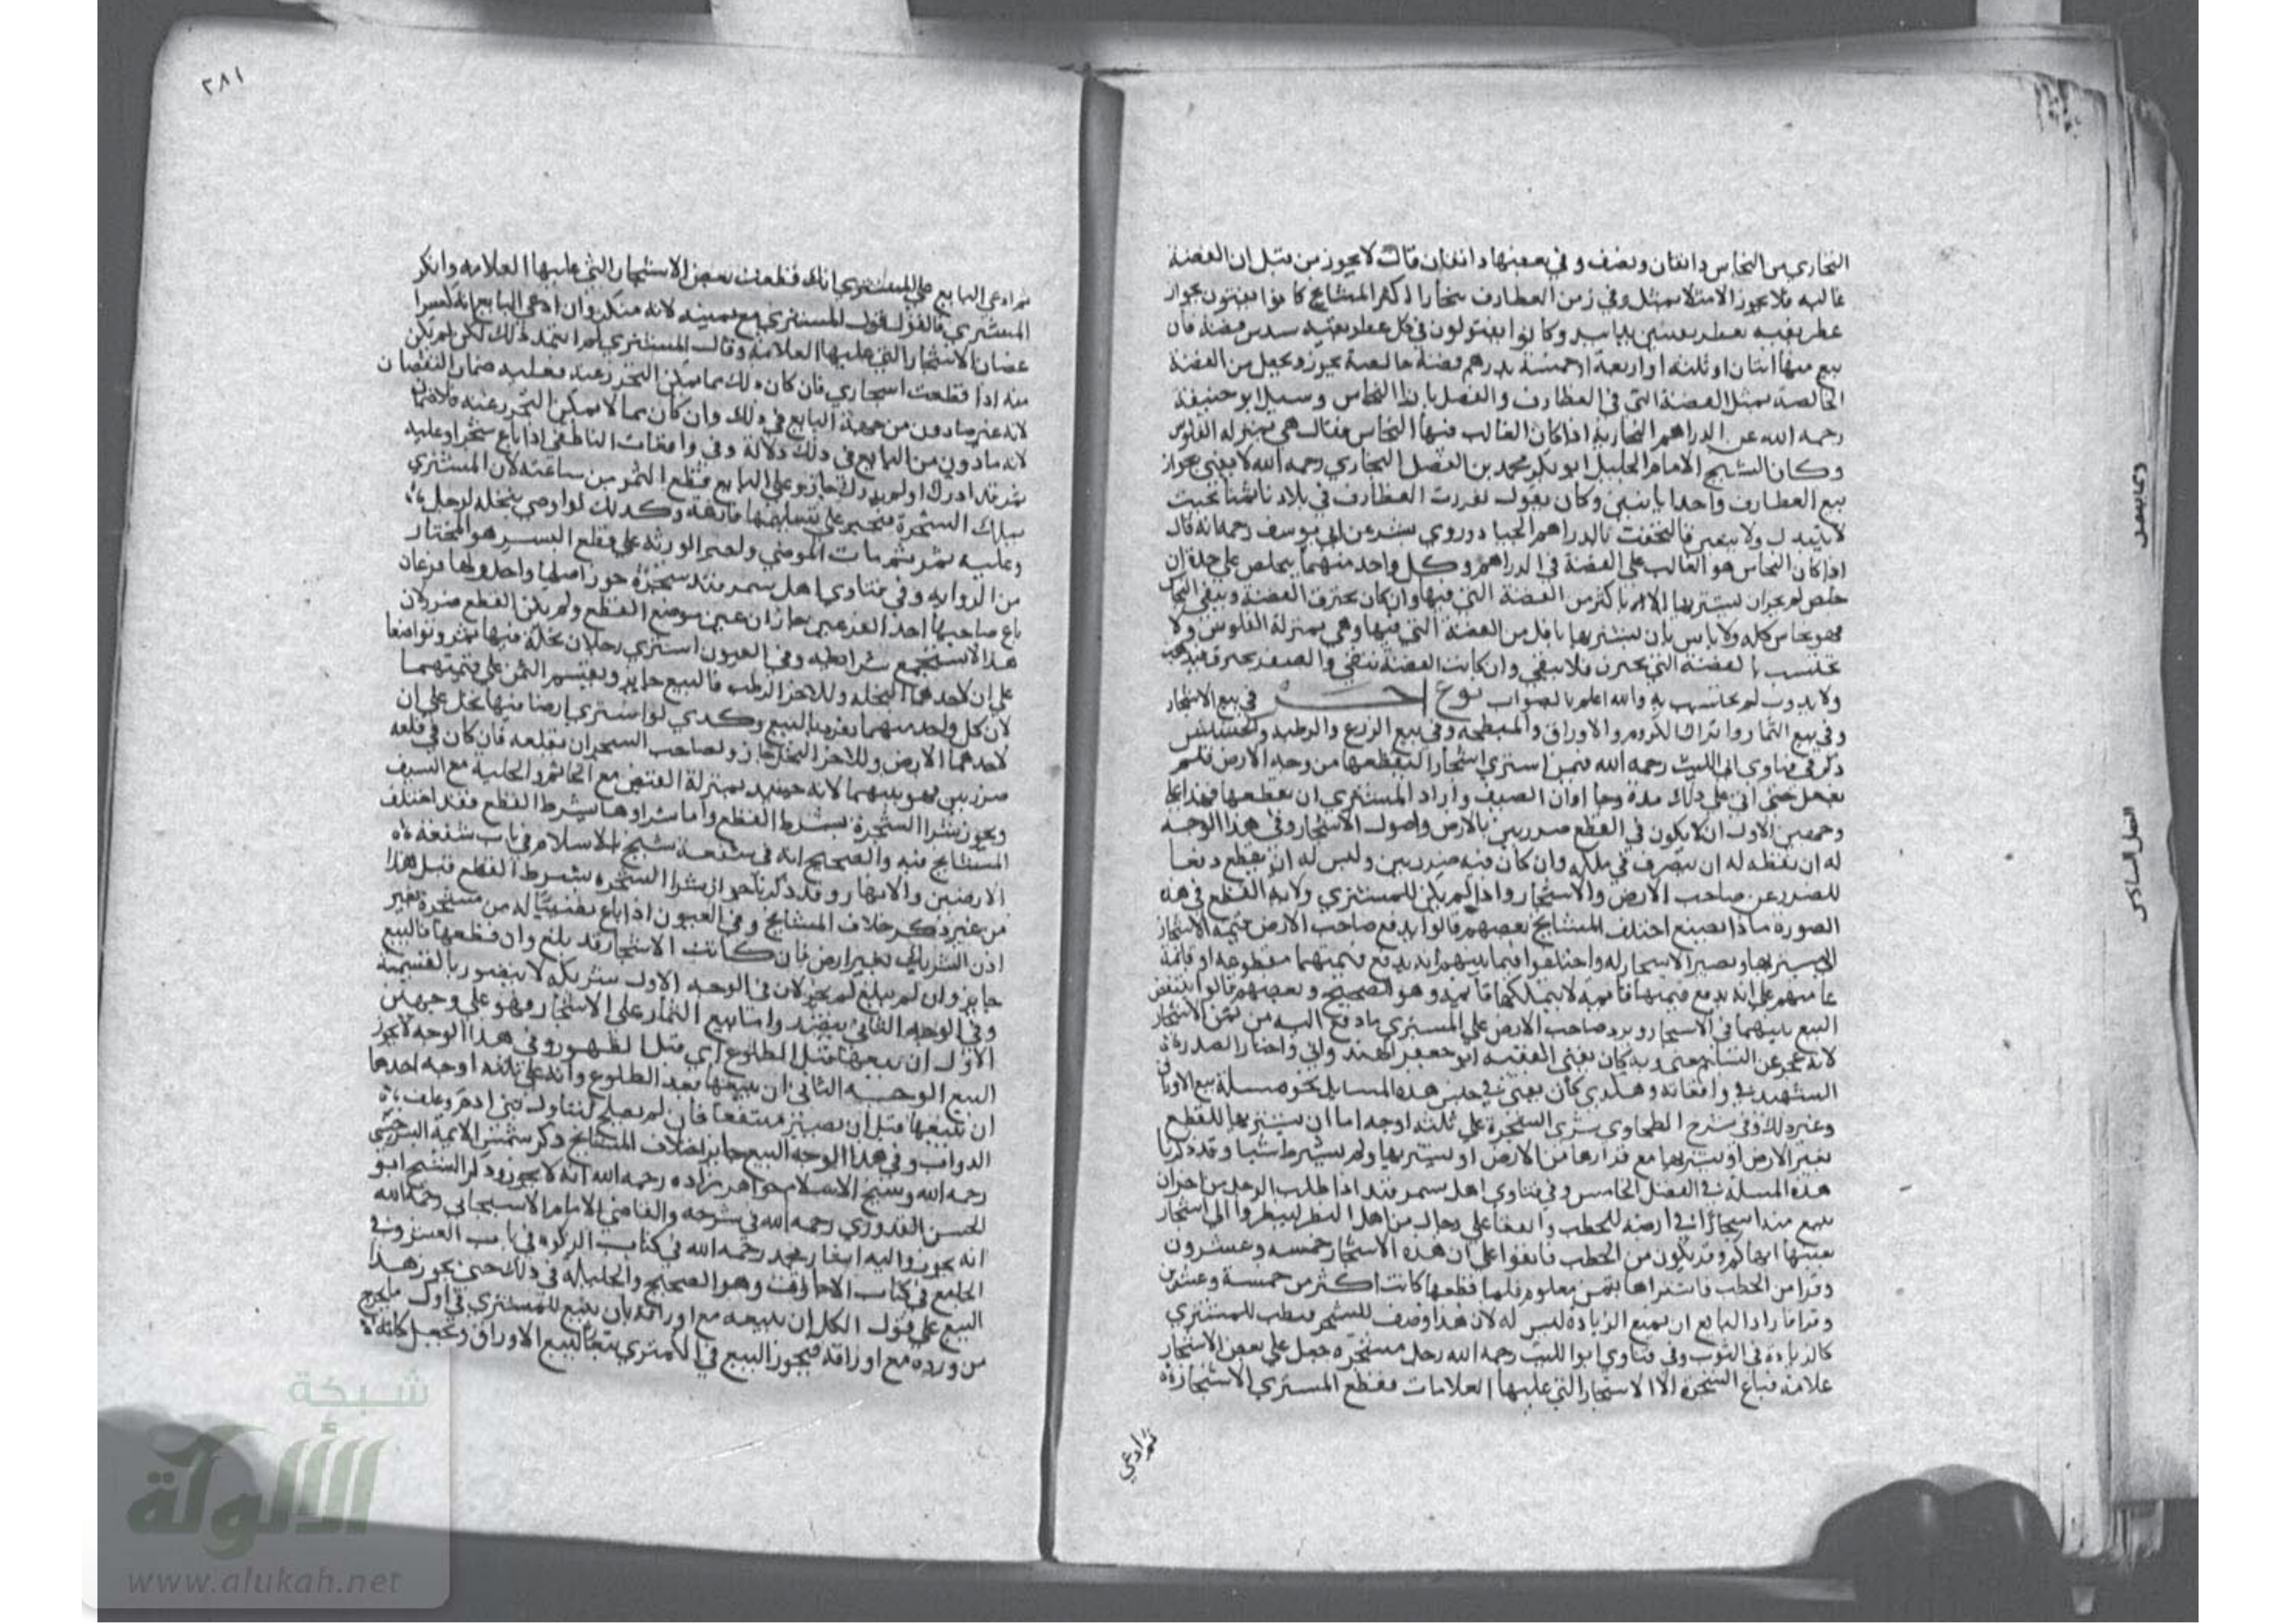 البخاري من النحاس دانقان ونصف وفي بعضها دانقان قال لا يجوز من قبل ان الفضة
غالبة فلا يجوز الا مثلا بمثل وفي زمن الغطارف ببخارا اكثر المشايخ كانوا يفتون بجواز
بيع منها اثنان او ثلثة او اربعة او خمسة بدرهم فضة خالصة يجوز ويجعل من الفضة
الخالصة بمثل الفضة التي في الغطارف والفضل بازاء النحاس وسيل ابو حنيفة
رحمه الله عن الدراهم البخارية اذا كان الغالب فيها النحاس فقال هي بمنزلة الفلوس
وكان الشيخ الامام الجليل ابو بكر محمد بن الفضل البخاري رحمه الله لا يفتي بجواز
بيع الغطارف واحدا باثنين وكان يقول تقررت الغطارف في بلادنا ثمنا بحيث
لا يتبدل ولا يتغير فالتحقت بالدراهم الجياد وروي بشر عن ابي يوسف رحمه انه قال
اذا كان النحاس هو الغالب على الفضة في الدراهم وكل واحد منهما يخلص على حدة ان
خلص لم يجز ان يشتريها الا باكثر من الفضة التي فيها وان كان يحترق الفضة ويبقى النحاس
فهو نحاس كله ولا باس بان يشتريها باقل من الفضة التي فيها وهي بمنزلة الفلوس ولا
يحتسب بالفضة التي تحترق فلا تبقى وان كانت الفضة تبقى والصفر يحترق
ولا يذوب لم يحتسب به والله اعلم بالصواب نوع اخر في بيع الاشجار
وفي بيع الثمار وانزال الكروم والاوراق والمبطخة وفي بيع الزرع والرطبة والحشيش
ذكر في فتاوي ابي الليث رحمه الله فيمن اشتري اشجارا ليقطعها من وجه الارض فلم
يفعل حتى اتى على ذلك مدة وجا اوان الصيف واراد المشتري ان يقطعها فهذا على
وجهين الاول ان لا يكون في القطع ضرر بين بالارض واصول الاشجار وفي هذا الوجه
له ان يقطع له ان يتصرف في ملكه وان كان فيه ضرر بين وليس له ان يقطع دفعا
للضرر عن صاحب الارض والاشجار واذا لم يكن للمشتري ولاية القطع في هذه
الصورة ماذا يصنع اختلف المشايخ بعضهم قالوا يدفع صاحب الارض قيمة الاشجار
الي مشتريها وتصير الاشجار له واختلفوا فيما بينهم انه يدفع قيمتها مقطوعة او قائمة
عامتهم على انه يدفع قيمتها قائمة لا يتملكها قائمة وهو الصحيح وبعضهم قالوا ينتقض
البيع بينهما في الاشجار ويرد صاحب الارض على المشتري ما دفع اليه من ثمن الاشجار
لانه عجز عن التسليم معنى وبه كان يفتي الفقيه ابو جعفر الهندواني واختار الصدر
الشهيد في واقعاته وهكذي كان يفتي في جنس هذه المسايل نحو مسلة بيع الاوراق
وغير ذلك وفي شرح الطحاوي شرى الشجرة على ثلثة اوجه اما ان يشتريها للقطع
بغير الارض او يشتريها مع قرارها من الارض او يشتريها ولم يشترط شيا وقد ذكرنا
هذه المسلة في الفصل الخامس وفي فتاوي اهل سمرقند اذا طلب الرجل من اخر ان
يبيع منه اشجارا في ارضه للحطب واتفقا على رجال من اهل النظر لينظروا الى اشجار
بعينها انها كم وقر يكون من الحطب فاتفقوا على ان هذه الاشجار خمسة وعشرون
وقرا من الحطب فاشتراها بثمن معلوم فلما قطعها كانت اكثر من خمسة وعشرين
وقرا فاراد البايع ان يمنع الزيادة ليس له لان هذا وصف للشجر فيطيب للمشتري
كالزيادة في الثوب وفي فتاوي ابو الليث رحمه الله رجل مشجرة جعل على بعض الاشجار
علامة فباع الشجرة الا الاشجار التي عليها العلامات فقطع المشتري الاشجار
ثم ادعي
٢٨١
ثم ادعى البايع على المشتري انك قطعت بعض الاشجار التي عليها العلامة وانكر
المشتري فالقول قول المشتري مع يمينه لانه منكر وان ادعى البايع انه كسر
اغصان الاشجار التي عليها العلامة وقال المشتري لم اتعمد ذلك لكن لم يكن
منه اذا قطعت اشجاري فان كان ذلك مما يمكن التحرز عنه فعليه ضمان النقصان
لانه غير ماذون من جهة البايع في ذلك وان كان مما لا يمكن التحرز عنه فلا ضمان
لانه ماذون من البايع في ذلك دلالة وفي واقعات الناطفي اذا باع شجرا وعليه
ثمر قد ادرك او لم يدرك جاز وعلى البايع قطع الثمر من ساعته لان المشتري
يملك الشجرة فيجبر على تسليمها فارغة وكذلك لو اوصى بنخلة لرجل
وعليه ثمر ثم مات الموصي ولجبر الورثة على قطع البسر هو المختار
من الرواية وفي فتاوي اهل سمرقند شجرة جوز اصلها واحد ولها فرعان
باع صاحبها احد الفرعين جاز ان عين موضع القطع ولم يكن القطع ضرر لان
هذا لا يستجمع شرايطه وفي العيون اشتري رجلان نخلة فيها ثمر وتواضعا
على ان لاحدهما النخلة وللاخر الرطب فالبيع جايز ويقسم الثمن على قيمتهما
لان كل واحد منهما يفرد بالبيع وكذي لو اشتري ارضا فيها نخل على ان
لاحدهما الارض وللاخر النخل جاز ولصاحب الشجر ان يقلعه فان كان في قلعه
ضرر بين فهو بينهما لانه حينيذ بمنزلة الفص مع الخاتم والحلية مع السيف
ويجوز شرا الشجرة بشرط القطع واما شراوها بشرط القطع فقد اختلف
المشايخ فيه والصحيح انه في شفعة شيخ الاسلام في باب شفعة
الارضين والانهار وقد ذكرنا جواز شرا الشجرة بشرط القطع قبل هذا
من غير ذكر خلاف المشايخ وفي العيون اذا باع نصيبا له من مشجرة بغير
اذن الشريك بغير ارض فان كانت الاشجار قد بلغ وان قطعها فالبيع
جايز وان لم يبلغ لم يجز لان في الوجه الاول شريكه لا يتضرر بالقسمة
وفي الوجه الثاني يتضرر واما بيع الثمار على الاشجار فهو على وجهين
الاول ان يبيعها قبل الطلوع اي قبل الظهور وفي هذا الوجه لا يجوز
البيع الوجه الثاني ان يبيعها بعد الطلوع وانه على ثلثة اوجه احدها
ان يبيعها قبل ان يصير منتفعا فان لم يصلح لتناول بني ادم وعلف
الدواب وفي هذا الوجه البيع جايز اختلاف المشايخ ذكر شمس الايمة السرخسي
رحمه الله وشيخ الاسلام خواهر زاده رحمه الله انه لا يجوز وذكر الشيخ ابو
الحسن القدوري رحمه الله في شرحه والقاضي الامام الاسبيجابي رحمه الله
انه يجوز واليه اشار محمد رحمه الله في كتاب الزكوة في باب العشر وفي
الجامع في كتاب الاجارات وهو الصحيح والحيلة في ذلك حتى يجوز هذا
البيع على قول الكل ان يبيعه مع اوراقه بان يبيع الكمثري في اول ما يخرج
من ورده مع اوراقه فيجوز البيع في الكمثري تبعا لبيع الاوراق ويجعل كانه
شبكة
الألوكة
www.alukah.net